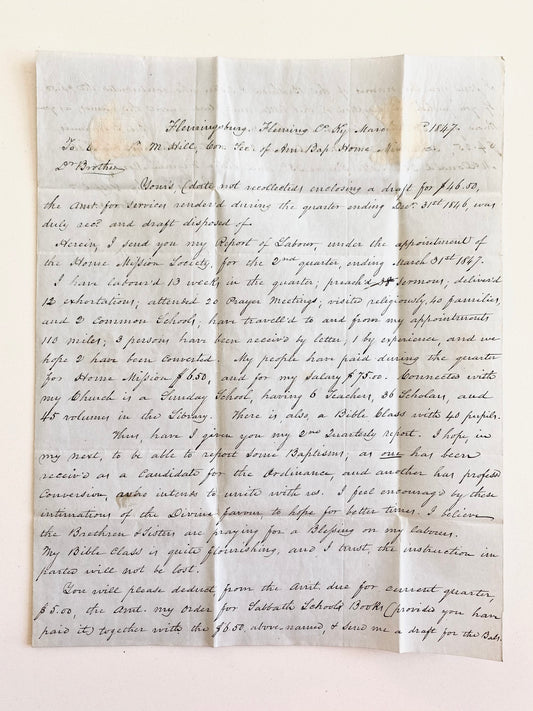 Flemingsburg. Fleming Co. Ky. March 1847.
To B. M. Hill, Cor. Sec. of Am. Bap. Home Mis
Dr Brother
Yours, (date not recollected) enclosing a draft for $46.50,
the Amt. for services render'd during the quarter ending Decr. 31st 1846, was
duly recd. and draft disposed of.
Herein, I send you my Report of Labour, under the appointment of
the Home Mission Society, for the 2nd quarter, ending March 31st 1847.
I have labour'd 13 weeks in the quarter; preach'd Sermons, deliver'd
12 exhortations; attended 20 Prayer Meetings; visited religiously 40 families,
and 2 Common Schools; have travell'd to and from my appointments
113 miles; 3 persons have been receiv'd by letter, 1 by experience, and we
hope 2 have been converted. My people have paid during the quarter
for Home Mission $6.50, and for my Salary $75.00. Connected with
my Church is a Sunday School, having 6 Teachers, 36 Scholars, and
45 volumes in the Library. There is, also, a Bible Class with 40 pupils.
Thus, have I given you my 2nd Quarterly report. I hope, in
my next, to be able to report some Baptisms; as one has been
receiv'd as a Candidate for the Ordinance, and another has profess'd
Conversion, who intends to unite with us. I feel encourag'd by these
intimations of the Divine favour to hope for better times. I believe
the Brethren & Sisters are praying for a Blessing on my labours.
My Bible Class is quite flourishing, and I trust, the instruction im
parted will not be lost.
You will please deduct, from the Amt. due for current quarter,
$5.00, the Amt. my Order for Sabbath School Books (provided you have
paid it) together with the $6.50, above-named, & send me a draft for the Bal.